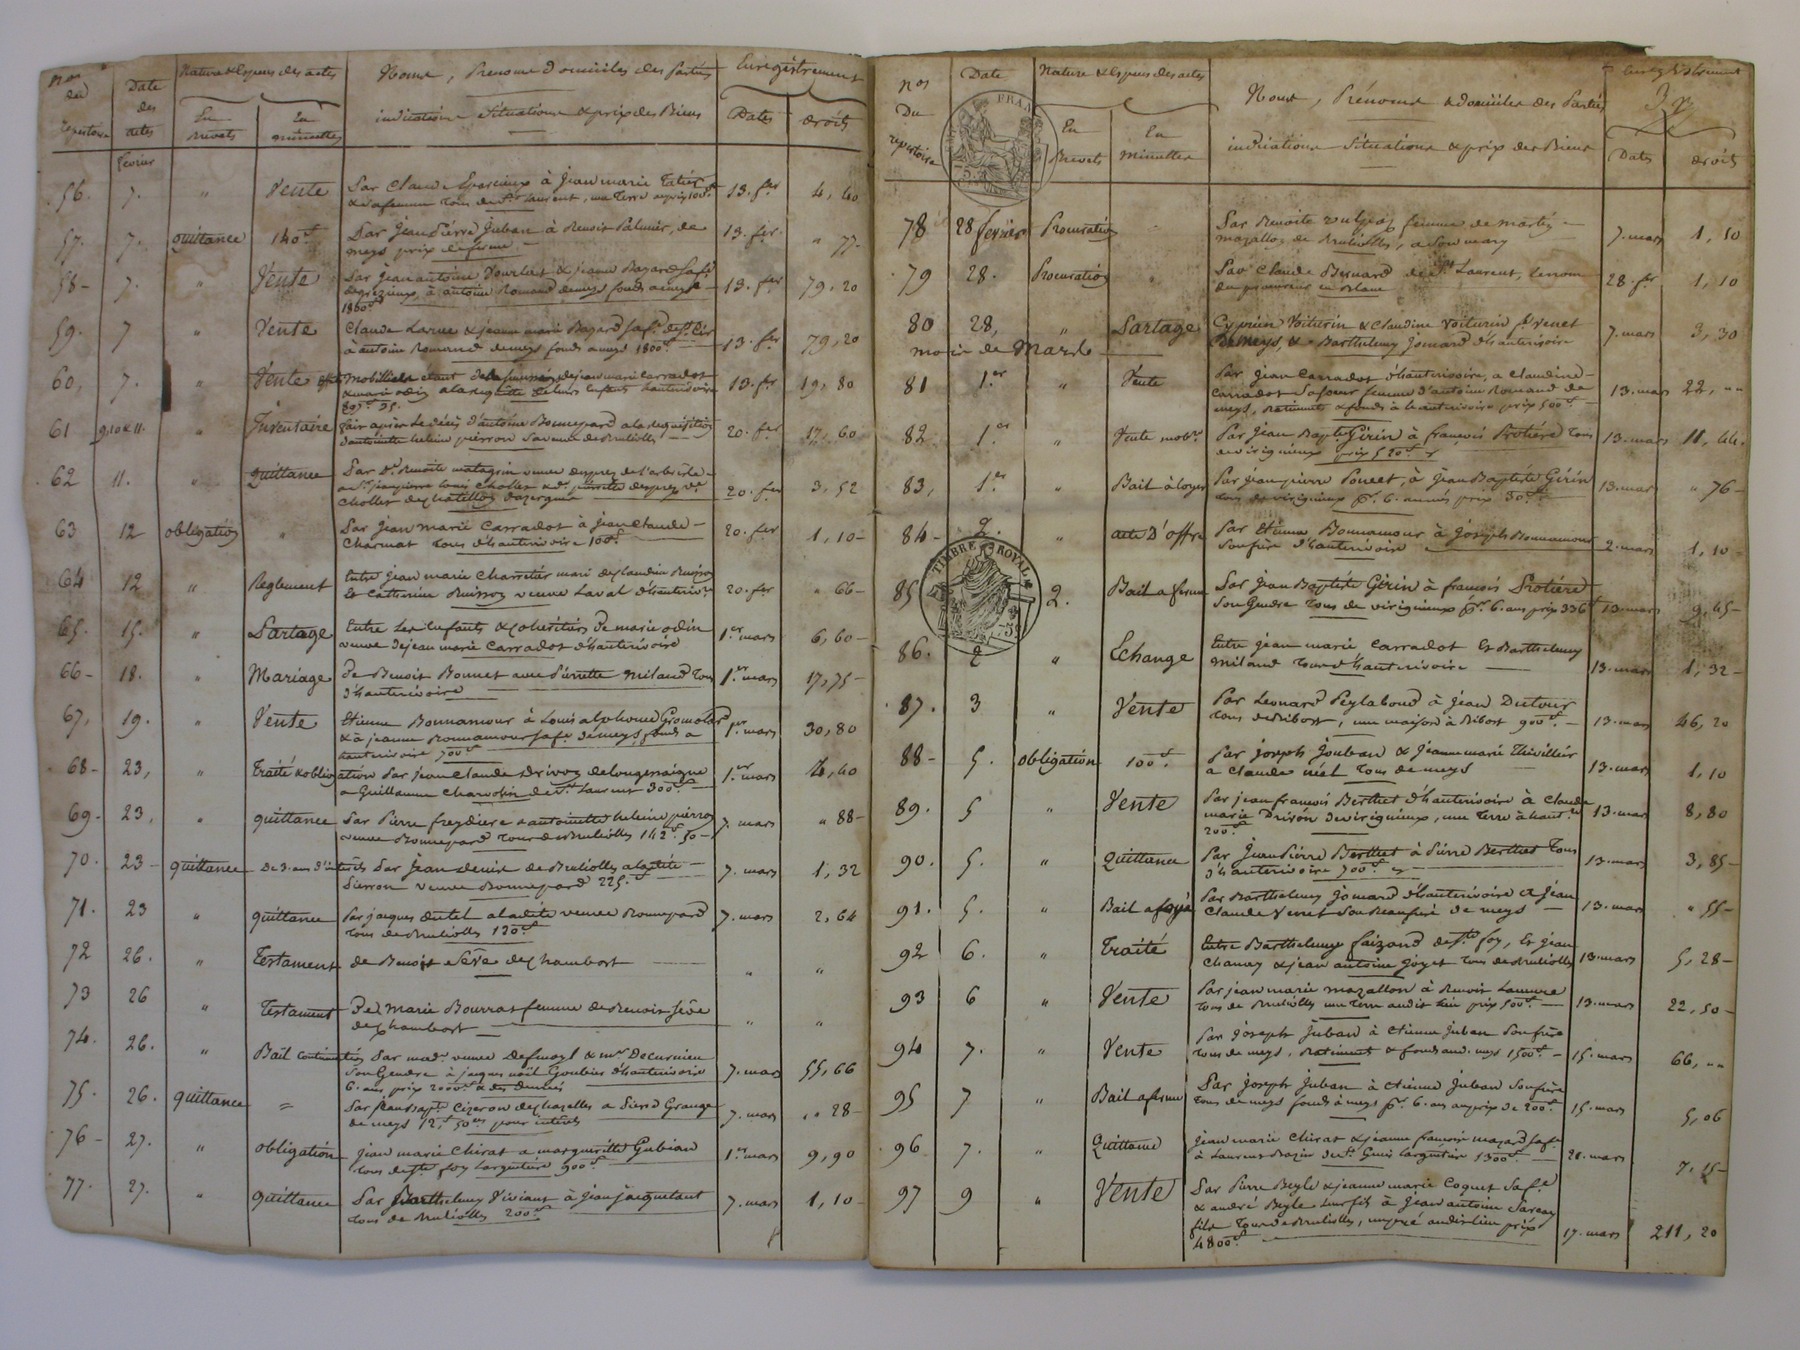 nos du repertoire
Date des actes
Nature & Espece des actes
En Brevets
En minuttes
Noms, Prenoms & domiciles des Parties
indications Situations & prix des Biens
Enregistrement
Dates
droits
fevrier
56. 7. " Vente Par Claude à Jean marie Tatier 13. fer 4, 40
& sa femme tous de St Laurent, une Terre
57. 7. quittance 140 Par Jean Pierre Juban à Benoit Palmier, de 13. fer " 77
meys prix de ferme
58 - 7. " Vente Par Jean antoine & jeanne Bazard sa fe 13. fer 79, 20
à antoine Romand de meys fonds a meys
1800
59. 7 " Vente Claude Larue & jeanne marie Bazard sa fe 13. fer 79, 20
à antoine Romand de meys fonds a meys 1800
60, 7. " Vente Mobilliere étant de la de jean marie carradot 13. fer 19, 80
& marie odin a la requête de leurs enfants d'hauterivoire
61 9. 10 & 11. " Inventaire fait après le décès d'antoine Bonnepard a la requisition 20. fer 17, 60
d'antoinette helene pierron sa veuve de Brulliolles
62 11. " quittance Par De Benoite matagrin veuve despres de l'arbresle 20. fer 3, 52
a Sr jean pierre louis chollet & De pierrette despres
chollet de chatillon d'azergues
63 12 obligation " Par Jean marie Carradot à jean claude 20. fer 1, 10
Charmat tous d'hauterivoire 100
64 12 " Reglement Entre jean marie Charretier mari de claudine 20. fer " 66
Et Catherine veuve Laval d'hauterivoire
65. 15. " Partage Entre les Enfants & coheritiers de marie odin 1.er mars 6, 60
veuve de jean marie Carradot d'hauterivoire
66 - 18. " Mariage de Benoit Bonnet avec Pierrette milaud tous 1.er mars 17, 75
d'hauterivoire
67, 19. " Vente Etienne Bonnamour à Louis alphonse Gromolard 1.er mars 30, 80
& à jeanne Bonnamour sa fe de meys, fonds a
hauterivoire 700
68 - 23, " Traité & obligation Par jean claude Drivon de longessaigne 1.er mars 4, 40
a Guillaume de St Laurent 300
69. 23, " quittance Par Pierre freydiere a antoinette helene pierron 7. mars " 88
veuve Bonnepard tous de Brulliolles 142 50
70. 23 - quittance de 3. ans d'interets Par Jean denis de Brulliolles a la dite 7. mars 1, 32
Pierron veuve Bonnepard 225.
71. 23 " quittance Par jacques dutel a la dite veuve Bonnepard 7. mars 2, 64
tous de Brulliolles 120
72 26. " Testament de Benoit Sève de chambost " "
73 26 " Testament De marie Bourrat femme de Benoit Sève " "
de chambost
74. 26. " Bail Par made veuve & mr Decurnieu 7. mars 55, 66
Son Gendre à jacques noël Goubier d'hauterivoire
6. ans, prix 2000
75. 26. quittance = Par Jean Bapte Cizeron de chazelles a Pierre Grange 7. mars " 28
de meys 12 50 pour interets
76 - 27. " obligation jean marie Chirat a marguerite Gubian 1.er mars 9, 90
tous de Ste foy l'argentiere 900
77. 27. " quittance Par Barthelemy Viviant à Jean jacquetant 7. mars 1, 10
tous de Brulliolles 200
nos Du repertoire
Date
Nature & Espece des actes
En Brevets
En minuttes
Noms, Prénoms & domiciles des Parties
indications Situations & prix des Biens
Enregistrement
Dates
droits
FRAN
78 28 fevrier Procuration Par Benoite femme de martin 7. mars 1, 10
mazallon de Brulliolles, a son mary
79 28. Procuration " Par Claude Bernard de St Laurent, le nom 28. fer 1, 10
du procureur en Blanc
80 28, " Partage Cyprien Voiturin & Claudine Voiturin fe Venet 7. mars 3, 30
de meys, & Barthelemy Jomard d'hauterivoire
mois de Mars
81 1.er " Vente Par Jean Carradot d'hauterivoire, a claudine 13. mars 22, ""
Carradot sa soeur femme d'antoine Romand de
meys, Batiments & fonds à hauterivoire prix 500
82. 1.er " Vente mobre Par Jean Bapte Girin à françois Protière tous 13. mars 11, 44
de virigneux prix 520
83, 1.er " Bail à loyer Par jean pierre Poncet, à Jean Baptiste Girin 13. mars " 76
tous de virigneux pr. 6. années prix 50
84 - 2. " acte D'offre Par Etienne Bonnamour à Joseph Bonnamour 2. mars 1, 10
Son frère d'hauterivoire
TIMBRE ROYAL
85 2. Bail a ferme Par Jean Baptiste Girin à francois Protière 13. mars 9, 45
Son Gendre tous de virigneux pr. 6. ans prix 336
86. 2 " Echange Entre jean marie Carradot Et Barthelemy 13. mars 1, 32
Milaud tous d'hauterivoire
87. 3 " Vente Par Leonard Peylaboud à Jean Dutour 13. mars 46, 20
tous de Ribost, une maison à Ribost 900
88 - 5. obligation 100 Par joseph Jouban & Jeanne marie Thivillier 13. mars 1, 10
a Claude néel tous de meys
89. 5 " Vente Par jean francois Berthet d'hauterivoire à Claude 13. mars 8, 80
marie de virigneux, une Terre à haut.re
200
90. 5. " Quittance Par Jean Pierre Berthet à Pierre Berthet tous 13. mars 3, 85
d'hauterivoire 700
91. 5. " Bail a Par Barthelemy Jomard d'hauterivoire & Jean 13. mars " 55
Claude Venet Son Beaufrère de meys
92 6. " Traité Entre Barthelemy faizand de Ste foy, Et jean 13. mars 5, 28
Chanay & jean antoine Goyet tous de Brulliolles
93 6 " Vente Par jean marie mazallon à Benoit 13. mars 22, 50
tous de Brulliolles une Terre audit lieu prix 500
94 7. " Vente Par Joseph Juban à Etienne Juban Son frère 15. mars 66, ""
tous de meys, Batiments & fonds aud. meys 1500
95 7 " Bail a ferme Par Joseph Juban à Etienne Juban Son frère 15. mars 5, 06
tous de meys fonds à meys pr. 6. ans au prix de 200
96 7. " Quittance jean marie Chirat & jeanne francoise mazard sa fe 21. mars 7, 15
à Laurent Bazin de St Genis l'argentière 1300
97 9 " Vente Par Pierre Beyle & jeanne marie Coquet sa fe
& andré Beyle leur fils à Jean antoine
fils tous de Brulliolles, audit lieu prix 17. mars 211, 20
4800